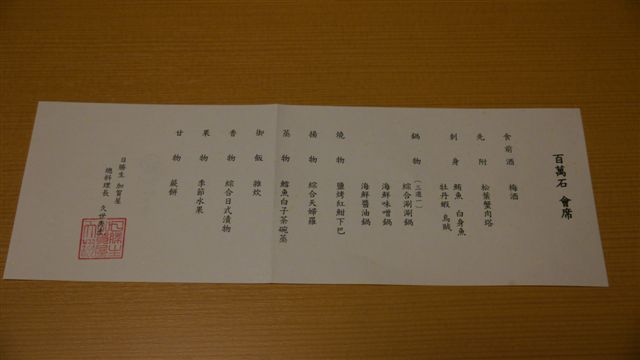 百萬石 會席
食前酒 梅酒
先附 松葉蟹向塔
刺身 鮪魚 白身魚
牡丹蝦 烏賊
鍋物 (三選一)
綜合涮涮鍋
海鮮味噌鍋
海鮮醬油鍋
燒物 鹽烤紅魽下巴
揚物 綜合天婦羅
蒸物 鱈魚白子茶碗蒸
御飯 雜炊
香物 綜合日式漬物
果物 季節水果
甘物 蕨餅
日勝生 加賀屋
總料理長 久世